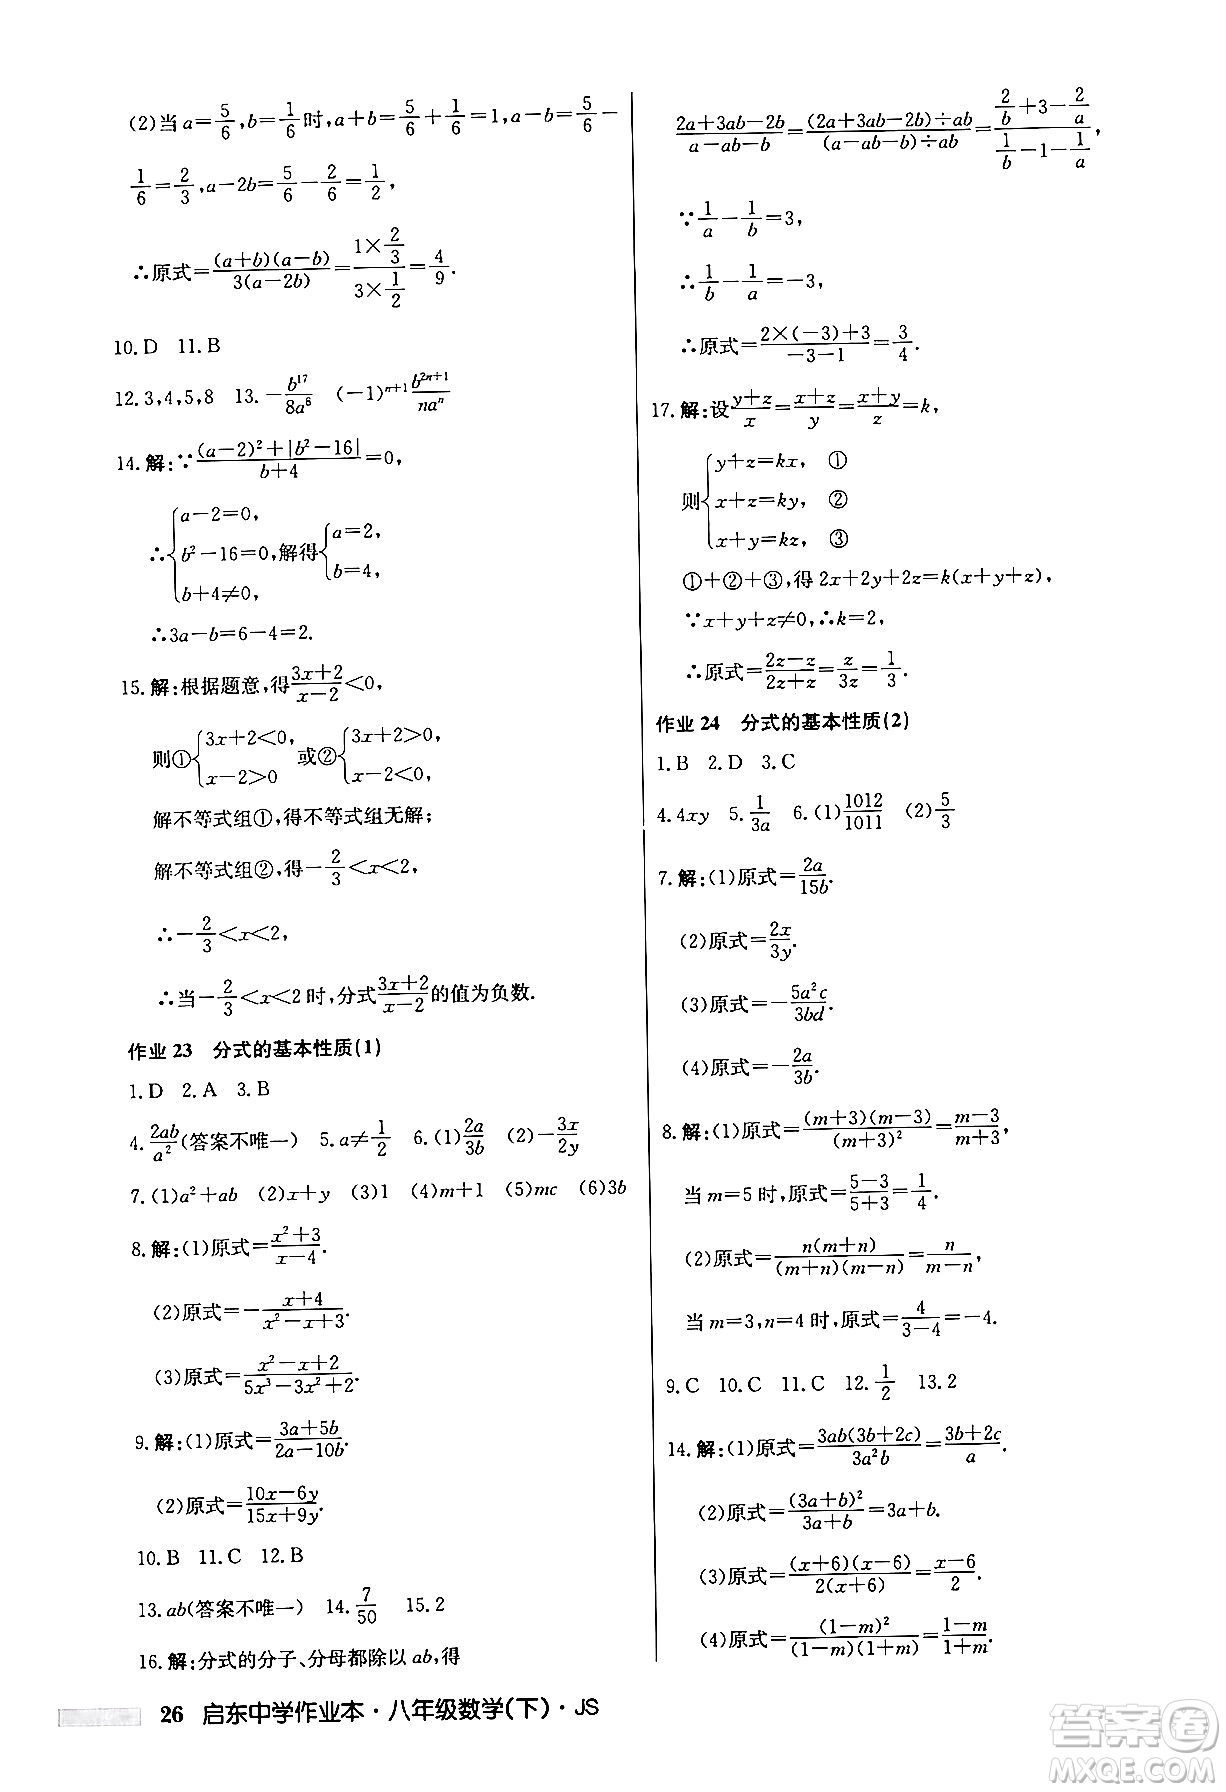 (2)当 a=5/6,b=1/6时,a+b=5/6+1/6=1,a-b=5/6-
1/6=2/3,a-2b=5/6-2/6=1/2,
∴原式=(a+b)(a-b)/3(a-2b)=(1×2/3)/(3×1/2)=4/9.
10.D 11.B
12.3,4,5,8 13.-b¹⁷/8a⁶ (-1)ⁿ⁺¹b²ⁿ⁺¹/naⁿ
14.解:∵((a-2)²+|b²-16|)/(b+4)=0,
∴{a-2=0, b²-16=0, b+4≠0, 解得{a=2, b=4,
∴3a-b=6-4=2.
15.解:根据题意,得(3x+2)/(x-2)<0,
则①{3x+2<0, x-2>0 或②{3x+2>0, x-2<0,
解不等式组①,得不等式组无解;
解不等式组②,得-2/3<x<2,
∴-2/3<x<2,
∴当-2/3<x<2时,分式(3x+2)/(x-2)的值为负数.
作业 23 分式的基本性质(1)
1.D 2.A 3.B
4.2ab/a²(答案不唯一) 5.a≠1/2 6.(1)2a/3b (2)-3x/2y
7.(1)a²+ab (2)x+y (3)1 (4)m+1 (5)mc (6)3b
8.解:(1)原式=(x²+3)/(x-4).
(2)原式=-(x+4)/(x²-x+3).
(3)原式=(x²-x+2)/(5x³-3x²+2).
9.解:(1)原式=(3a+5b)/(2a-10b).
(2)原式=(10x-6y)/(15x+9y).
10.B 11.C 12.B
13.ab(答案不唯一) 14.7/50 15.2
16.解:分式的分子、分母都除以 ab,得
(2a+3ab-2b)/(a-ab-b)=(2a+3ab-2b)÷ab/(a-ab-b)÷ab=(2/b+3-2/a)/(1/b-1-1/a),
∵1/a-1/b=3,
∴1/b-1/a=-3,
∴原式=(2×(-3)+3)/(-3-1)=3/4.
17.解:设(y+z)/x=(x+z)/y=(x+y)/z=k,
则{y+z=kx, ① x+z=ky, ② x+y=kz, ③
①+②+③,得 2x+2y+2z=k(x+y+z),
∵x+y+z≠0,∴k=2,
∴原式=(2z-z)/(2z+z)=z/3z=1/3.
作业 24 分式的基本性质(2)
1.B 2.D 3.C
4.4xy 5.1/3a 6.(1)1012/1011 (2)5/3
7.解:(1)原式=2a/15b.
(2)原式=2x/3y.
(3)原式=-5a²c/3bd.
(4)原式=-2a/3b.
8.解:(1)原式=(m+3)(m-3)/(m+3)²=(m-3)/(m+3),
当 m=5 时,原式=(5-3)/(5+3)=1/4.
(2)原式=n(m+n)/(m+n)(m-n)=n/(m-n),
当 m=3,n=4 时,原式=4/(3-4)=-4.
9.C 10.C 11.C 12.1/2 13.2
14.解:(1)原式=3ab(3b+2c)/3a²b=(3b+2c)/a.
(2)原式=(3a+b)²/(3a+b)=3a+b.
(3)原式=(x+6)(x-6)/2(x+6)=(x-6)/2.
(4)原式=(1-m)²/(1-m)(1+m)=(1-m)/(1+m).
26 启东中学作业本·八年级数学(下)·JS
答案圈
MXQE.COM